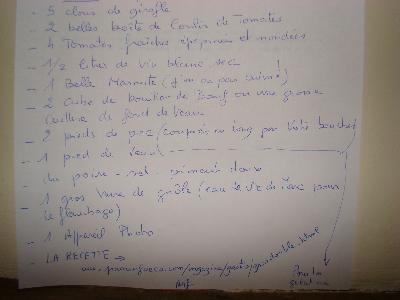 - 5 clous de girofle
- 2 belles boîte de Coulis de Tomates
- 4 Tomates fraîches épépinées et mondées
- 1/2 litres de vin blanc sec
- 1 Belle Marmite (j'en ai pas !
- 2 Cube de bouillon de Bœuf ou une grosse
cuillère de fond de veau
- 2 pieds de porc/coupés en long par votre boucher
- 1 pied de veau
- du poivre - sel - piment doux
- 1 gros verre de (eau de vie de pour
le flambage)
- 1 Appareil Photo
- LA RECETTE →
Pour la